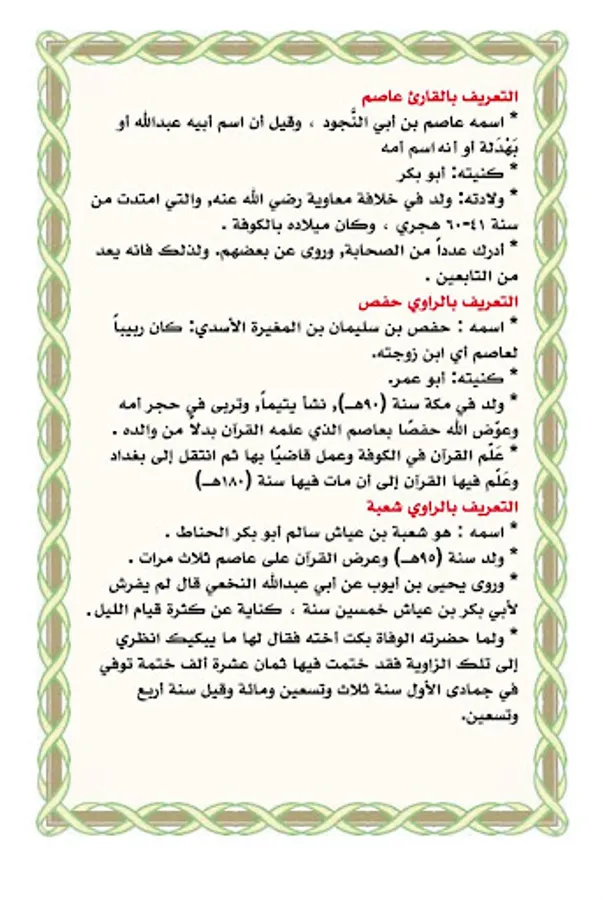 التعريف بالقارئ عاصم
* اسمه عاصم بن أبي النَّجود ، وقيل أن اسم أبيه عبدالله أو
بَهْدَلة أو أنه اسم أمه
* كنيته: أبو بكر
* ولادته: ولد في خلافة معاوية رضي الله عنه, والتي امتدت من
سنة ٤١-٦٠ هجري ، وكان ميلاده بالكوفة .
* أدرك عدداً من الصحابة, وروى عن بعضهم. ولذلك فانه يعد
من التابعين .
التعريف بالراوي حفص
* اسمه : حفص بن سليمان بن المغيرة الأسدي: كان ربيباً
لعاصم أي ابن زوجته.
* كنيته: أبو عمر.
* ولد في مكة سنة (٩٠هـ), نشأ يتيماً, وتربى في حجر أمه
وعوّض الله حفصًا بعاصم الذي علمه القرآن بدلاً من والده .
* عَلّم القرآن في الكوفة وعمل قاضيًا بها ثم انتقل إلى بغداد
وعَلّم فيها القرآن إلى أن مات فيها سنة (١٨٠هـ)
التعريف بالراوي شعبة
* اسمه : هو شعبة بن عياش سالم أبو بكر الحناط .
* ولد سنة (٩٥هـ) وعرض القرآن على عاصم ثلاث مرات .
* وروى يحيى بن أيوب عن أبي عبدالله النخعي قال لم يفرش
لأبي بكر بن عياش خمسين سنة ، كناية عن كثرة قيام الليل.
* ولما حضرته الوفاة بكت أخته فقال لها ما يبكيك انظري
إلى تلك الزاوية فقد ختمت فيها ثمان عشرة ألف ختمة توفي
في جمادى الأول سنة ثلاث وتسعين ومائة وقيل سنة أربع
وتسعين.